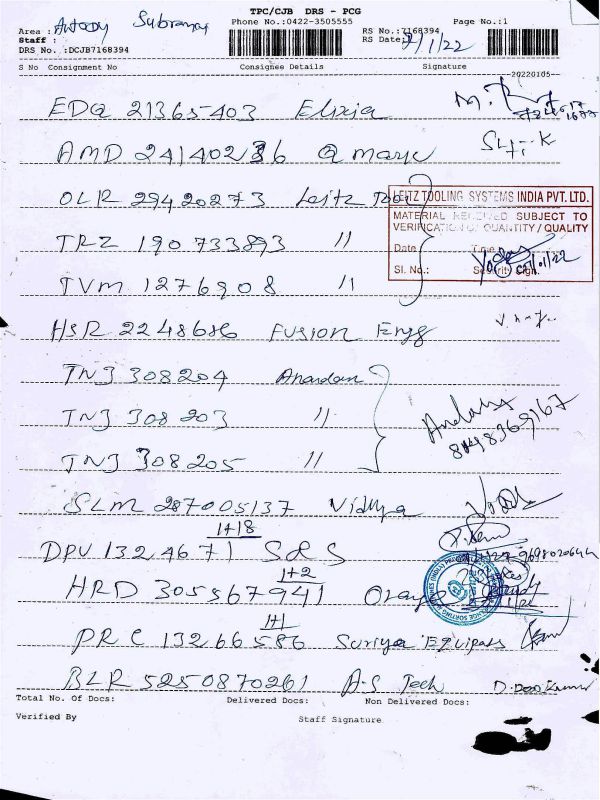 TPC/CJB DRS - PCG
Phone No.:0422-3505555 Page No.:1
Area : Antony Subramay
Staff :
RS No.:7168394
RS Date: 7/1/22
DRS No. :DCJB7168394
S No Consignment No Consignee Details Signature
20220105
EDQ 21365403 Elixia
AMD 241402386 @ mayc
SLT.K
OLR 29420273 Leitz Tool
LEITZ TOOLING SYSTEMS INDIA PVT. LTD.
MATERIAL RECEIVED SUBJECT TO
VERIFICATION OF QUANTITY / QUALITY
Date Time
Sl. No.: Security Sign.
07/01/22
TRZ 190733893 11
TVM 1276908 11
HSR 2248686 Fusion Engg
TNJ 308204 Anandam
TNJ 308203 11
TNJ 308205 11
8148369167
SLM 287005137 Vidhya
1+18
DPV 1324671 SRS
9698020644
1+2
HRD 305567941 Orange
1+1
PRC 13266586 Suriya Equipass
BLR 5250870261 A-S Tech
Total No. Of Docs: Delivered Docs: Non Delivered Docs:
Verified By Staff Signature